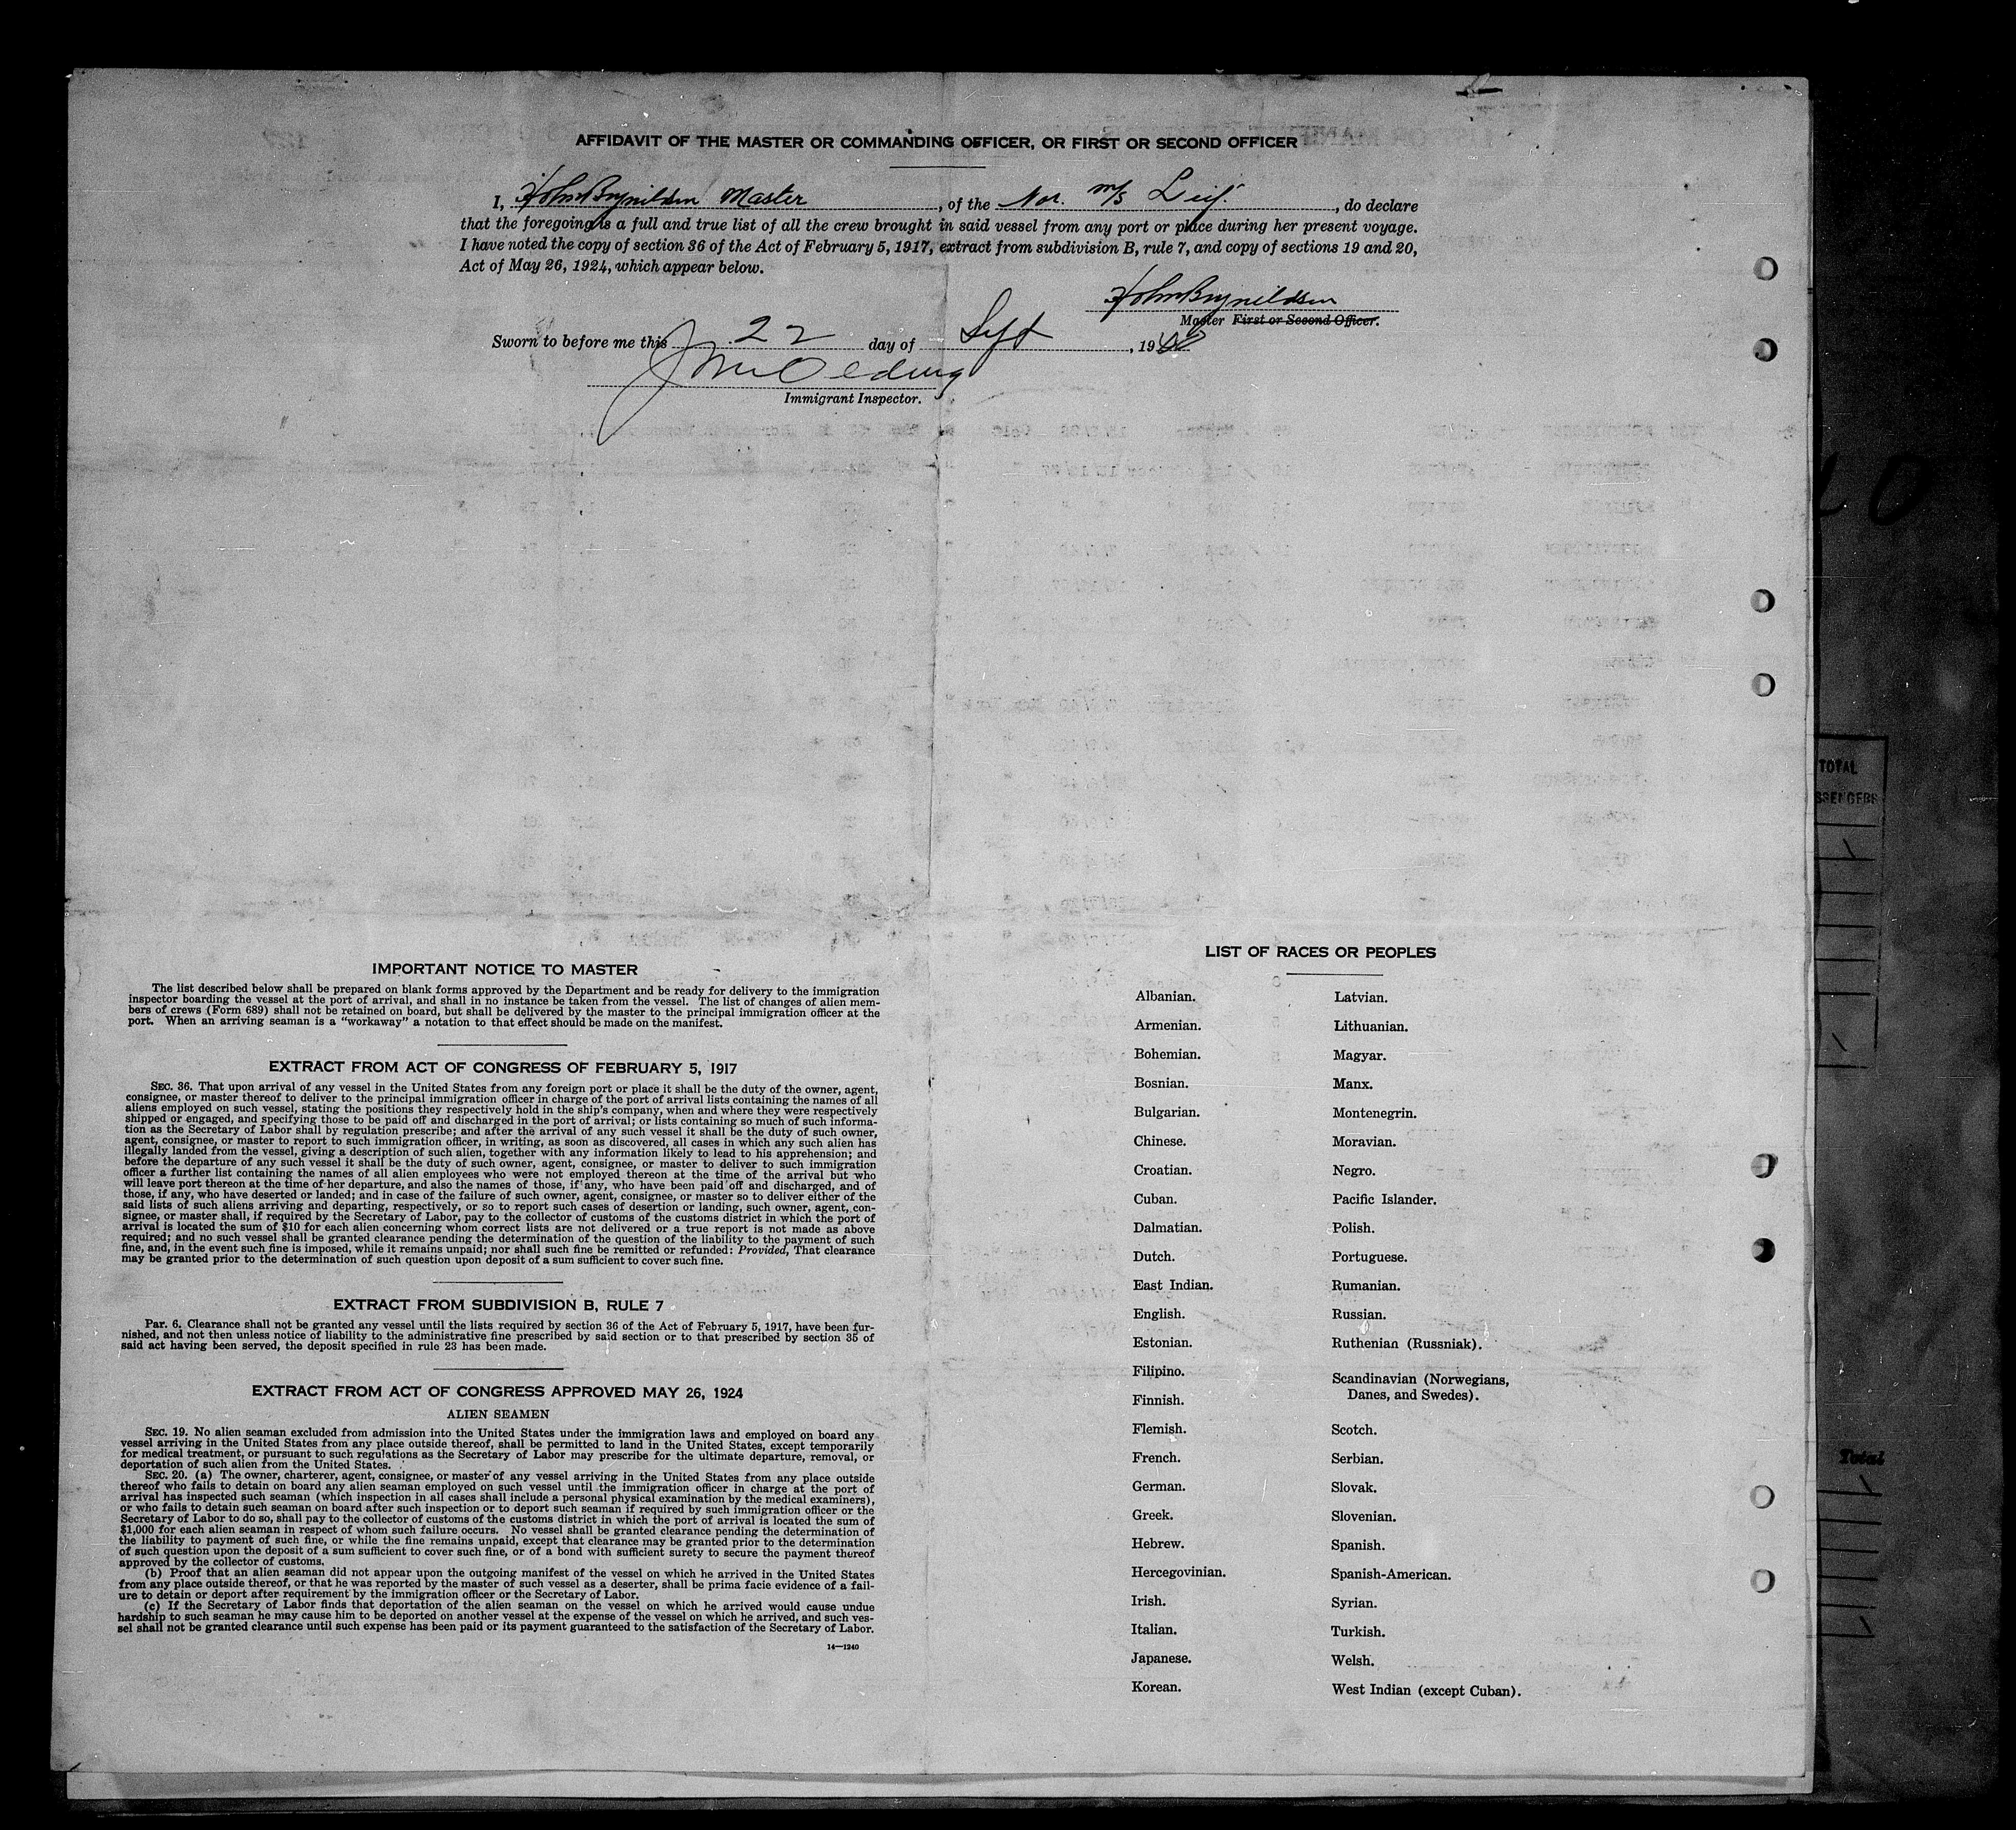 AFFIDAVIT OF THE MASTER OR COMMANDING OFFICER, OR FIRST OR SECOND OFFICER
I, John Brynildsen Master, of the Nor. m/s Leif., do declare
that the foregoing is a full and true list of all the crew brought in said vessel from any port or place during her present voyage.
I have noted the copy of section 36 of the Act of February 5, 1917, extract from subdivision B, rule 7, and copy of sections 19 and 20,
Act of May 26, 1924, which appear below.
John Brynildsen
Master First or Second Officer.
Sworn to before me this 22 day of Sept, 1940
Immigrant Inspector.
IMPORTANT NOTICE TO MASTER
The list described below shall be prepared on blank forms approved by the Department and be ready for delivery to the immigration
inspector boarding the vessel at the port of arrival, and shall in no instance be taken from the vessel. The list of changes of alien mem-
bers of crews (Form 689) shall not be retained on board, but shall be delivered by the master to the principal immigration officer at the
port. When an arriving seaman is a "workaway" a notation to that effect should be made on the manifest.
EXTRACT FROM ACT OF CONGRESS OF FEBRUARY 5, 1917
SEC. 36. That upon arrival of any vessel in the United States from any foreign port or place it shall be the duty of the owner, agent,
consignee, or master thereof to deliver to the principal immigration officer in charge of the port of arrival lists containing the names of all
aliens employed on such vessel, stating the positions they respectively hold in the ship's company, when and where they were respectively
shipped or engaged, and specifying those to be paid off and discharged in the port of arrival; or lists containing so much of such informa-
tion as the Secretary of Labor shall by regulation prescribe; and after the arrival of any such vessel it shall be the duty of such owner,
agent, consignee, or master to report to such immigration officer, in writing, as soon as discovered, all cases in which any such alien has
illegally landed from the vessel, giving a description of such alien, together with any information likely to lead to his apprehension; and
before the departure of any such vessel it shall be the duty of such owner, agent, consignee, or master to deliver to such immigration
officer a further list containing the names of all alien employees who were not employed thereon at the time of the arrival but who
will leave port thereon at the time of her departure, and also the names of those, if any, who have been paid off and discharged, and of
those, if any, who have deserted or landed; and in case of the failure of such owner, agent, consignee, or master so to deliver either of the
said lists of such aliens arriving and departing, respectively, or so to report such cases of desertion or landing, such owner, agent, con-
signee, or master shall, if required by the Secretary of Labor, pay to the collector of customs of the customs district in which the port of
arrival is located the sum of $10 for each alien concerning whom correct lists are not delivered or a true report is not made as above
required; and no such vessel shall be granted clearance pending the determination of the question of the liability to the payment of such
fine, and, in the event such fine is imposed, while it remains unpaid; nor shall such fine be remitted or refunded: Provided, That clearance
may be granted prior to the determination of such question upon deposit of a sum sufficient to cover such fine.
EXTRACT FROM SUBDIVISION B, RULE 7
Par. 6. Clearance shall not be granted any vessel until the lists required by section 36 of the Act of February 5, 1917, have been fur-
nished, and not then unless notice of liability to the administrative fine prescribed by said section or to that prescribed by section 35 of
said act having been served, the deposit specified in rule 23 has been made.
EXTRACT FROM ACT OF CONGRESS APPROVED MAY 26, 1924
ALIEN SEAMEN
SEC. 19. No alien seaman excluded from admission into the United States under the immigration laws and employed on board any
vessel arriving in the United States from any place outside thereof, shall be permitted to land in the United States, except temporarily
for medical treatment, or pursuant to such regulations as the Secretary of Labor may prescribe for the ultimate departure, removal, or
deportation of such alien from the United States.
SEC. 20. (a) The owner, charterer, agent, consignee, or master of any vessel arriving in the United States from any place outside
thereof who fails to detain on board any alien seaman employed on such vessel until the immigration officer in charge at the port of
arrival has inspected such seaman (which inspection in all cases shall include a personal physical examination by the medical examiners),
or who fails to detain such seaman on board after such inspection or to deport such seaman if required by such immigration officer or the
Secretary of Labor to do so, shall pay to the collector of customs of the customs district in which the port of arrival is located the sum of
$1,000 for each alien seaman in respect of whom such failure occurs. No vessel shall be granted clearance pending the determination of
the liability to payment of such fine, or while the fine remains unpaid, except that clearance may be granted prior to the determination
of such question upon the deposit of a sum sufficient to cover such fine, or of a bond with sufficient surety to secure the payment thereof
approved by the collector of customs.
(b) Proof that an alien seaman did not appear upon the outgoing manifest of the vessel on which he arrived in the United States
from any place outside thereof, or that he was reported by the master of such vessel as a deserter, shall be prima facie evidence of a fail-
ure to detain or deport after requirement by the immigration officer or the Secretary of Labor.
(c) If the Secretary of Labor finds that deportation of the alien seaman on the vessel on which he arrived would cause undue
hardship to such seaman he may cause him to be deported on another vessel at the expense of the vessel on which he arrived, and such ves-
sel shall not be granted clearance until such expense has been paid or its payment guaranteed to the satisfaction of the Secretary of Labor.
14—1240
LIST OF RACES OR PEOPLES
Albanian.
Armenian.
Bohemian.
Bosnian.
Bulgarian.
Chinese.
Croatian.
Cuban.
Dalmatian.
Dutch.
East Indian.
English.
Estonian.
Filipino.
Finnish.
Flemish.
French.
German.
Greek.
Hebrew.
Hercegovinian.
Irish.
Italian.
Japanese.
Korean.
Latvian.
Lithuanian.
Magyar.
Manx.
Montenegrin.
Moravian.
Negro.
Pacific Islander.
Polish.
Portuguese.
Rumanian.
Russian.
Ruthenian (Russniak).
Scandinavian (Norwegians,
Danes, and Swedes).
Scotch.
Serbian.
Slovak.
Slovenian.
Spanish.
Spanish-American.
Syrian.
Turkish.
Welsh.
West Indian (except Cuban).
TOTAL
Total